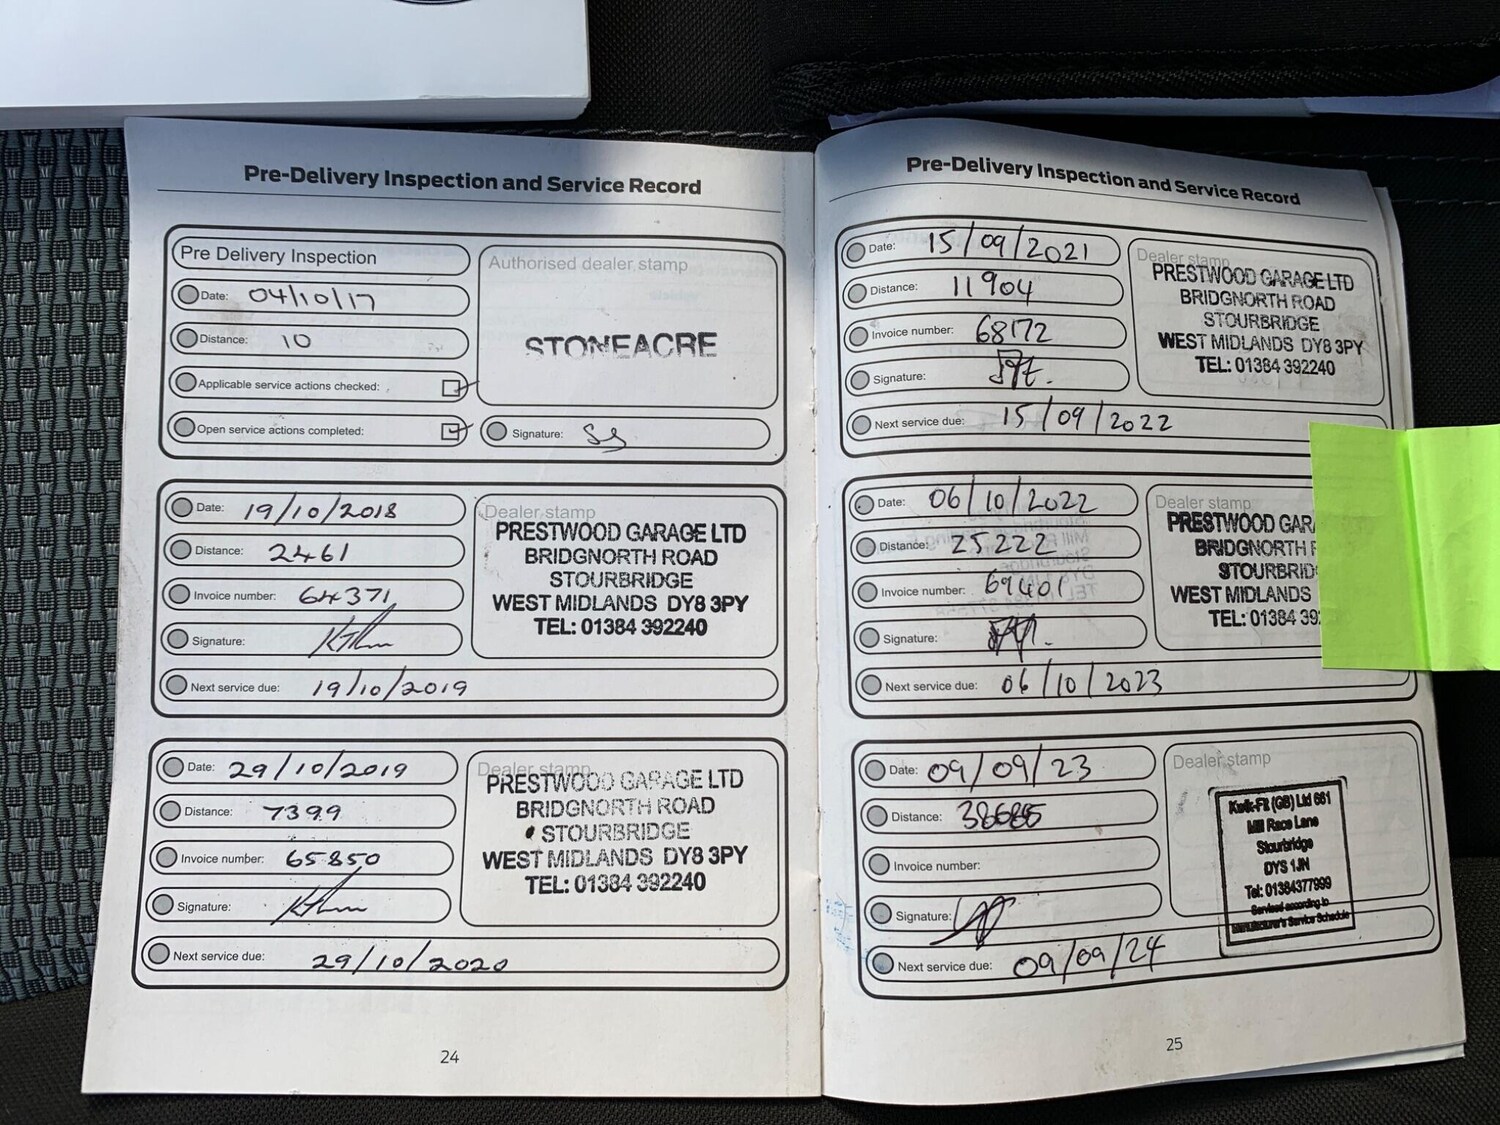 Pre-Delivery Inspection and Service Record
Pre Delivery Inspection
Date: 04/10/17
Distance: 10
Applicable service actions checked:
Open service actions completed:
Authorised dealer stamp
STONEACRE
Signature: SS
Date: 19/10/2018
Distance: 2461
Invoice number: 64371
Signature:
Next service due: 19/10/2019
Dealer stamp
PRESTWOOD GARAGE LTD
BRIDGNORTH ROAD
STOURBRIDGE
WEST MIDLANDS DY8 3PY
TEL: 01384 392240
Date: 29/10/2019
Distance: 7399
Invoice number: 65850
Signature:
Next service due: 29/10/2020
Dealer stamp
PRESTWOOD GARAGE LTD
BRIDGNORTH ROAD
STOURBRIDGE
WEST MIDLANDS DY8 3PY
TEL: 01384 392240
24
Pre-Delivery Inspection and Service Record
Date: 15/09/2021
Distance: 11904
Invoice number: 68172
Signature:
Next service due: 15/09/2022
Dealer stamp
PRESTWOOD GARAGE LTD
BRIDGNORTH ROAD
STOURBRIDGE
WEST MIDLANDS DY8 3PY
TEL: 01384 392240
Date: 06/10/2022
Distance: 25222
Invoice number: 69401
Signature:
Next service due: 06/10/2023
Dealer stamp
PRESTWOOD GAR
BRIDGNORTH R
STOURBRID
WEST MIDLANDS
TEL: 01384 39
Date: 09/09/23
Distance:
Invoice number:
Signature:
Next service due: 09/09/24
Dealer stamp
Kwik-Fit (GB) Ltd 661
Mill Race Lane
Stourbridge
DY5 1JN
Tel: 01384377999
Serviced according to
Manufacturer's Service Schedule
25